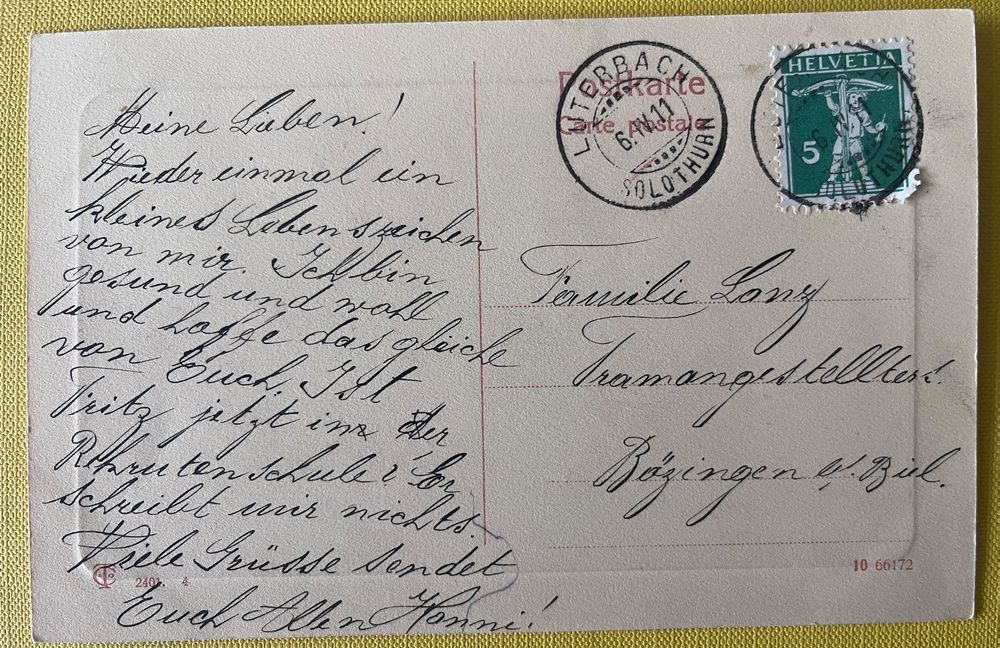 Meine Lieben!
Wieder einmal ein
kleines Lebenszeichen
von mir. Ich bin
gesund und wohl
und hoffe das gleiche
von Euch. Ist
Fritz jetzt in der
Rekrutenschule? Er
schreibt mir nichts.
Viele Grüsse sendet
Euch Allen Hanni!
2401. 4
Postkarte
Carte postale
LUTERBACH
6.IV.11
SOLOTHURN
HELVETIA
5
SOLOTHURN
Familie Lanz
Tramangestellter.
Bözingen b/. Biel.
10 66172